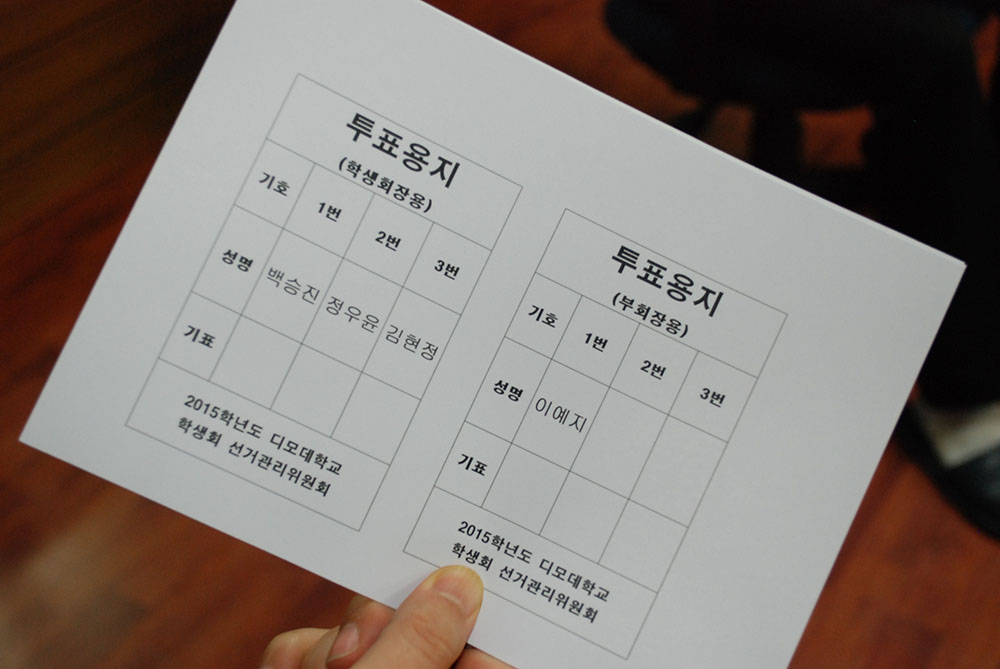 투표용지
(학생회장용)
기호 1번 2번 3번
성명 백승진 정우윤 김현정
기표
2015학년도 디모데학교
학생회 선거관리위원회
투표용지
(부회장용)
기호 1번 2번 3번
성명 이예지
기표
2015학년도 디모데학교
학생회 선거관리위원회